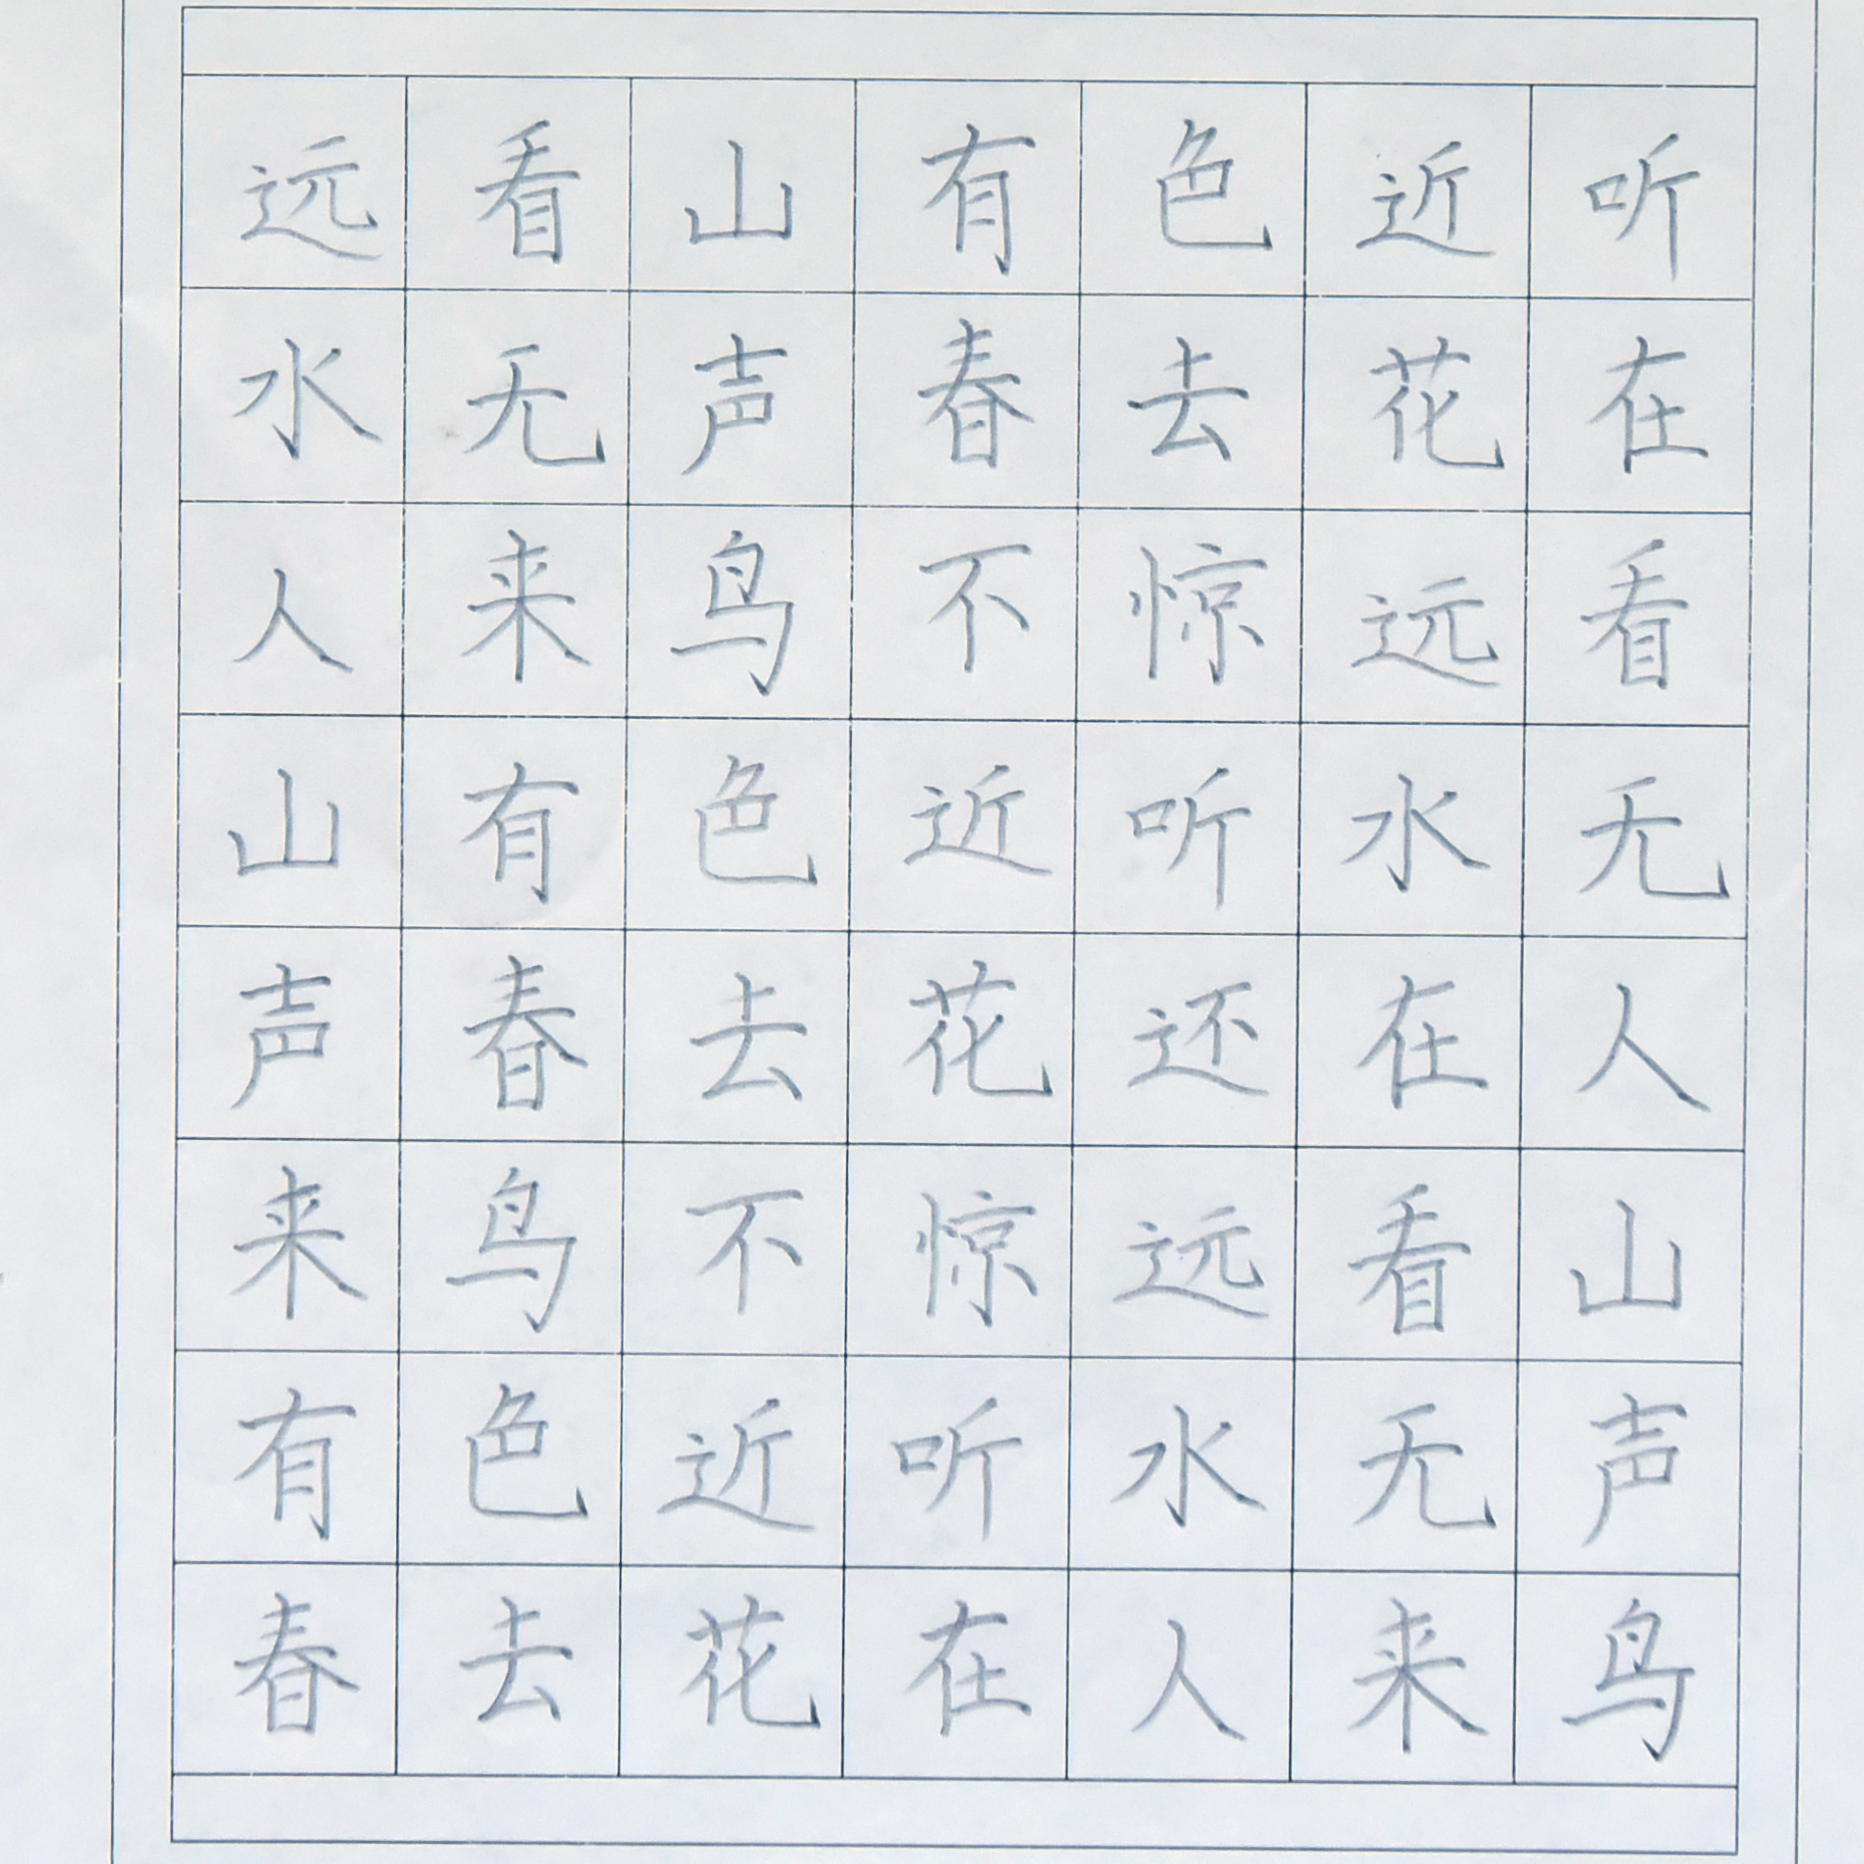 远看山有色近听
水无声春去花在
人来鸟不惊远看
山有色近听水无
声春去花还在人
来鸟不惊远看山
有色近听水无声
春去花在人来鸟